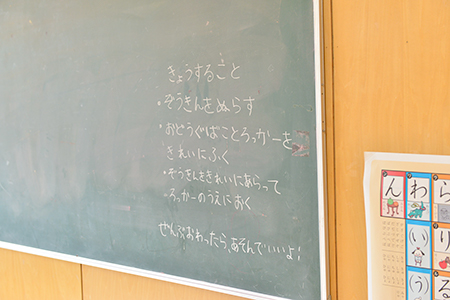 きょうすること
・ぞうきんをぬらす
・おどうぐばことろっかーを
きれいにふく
・ぞうきんをきれいにあらって
ろっかーのうえにおく
ぜんぶおわったら、あそんでいいよ!
ん わ ら
(い) り
(う) る